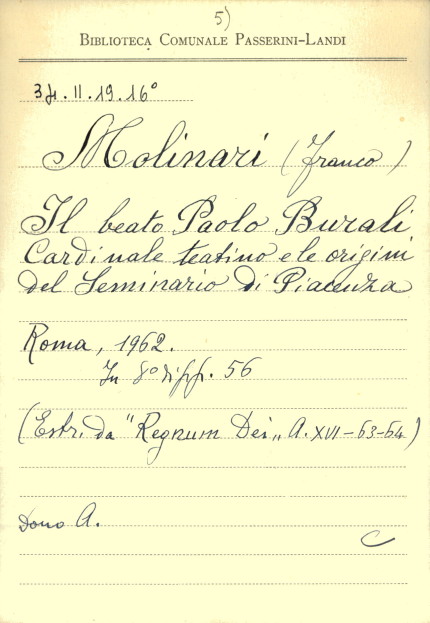 5)
BIBLIOTECA COMUNALE PASSERINI-LANDI
34.II.19.16°
Molinari (Franco)
Il beato Paolo Burali
Cardinale teatino e le origini
del Seminario di Piacenza
Roma, 1962.
In 8° pp. 56
(Estr. da "Regnum Dei" A. XVI-63-64)
Dono A.
C